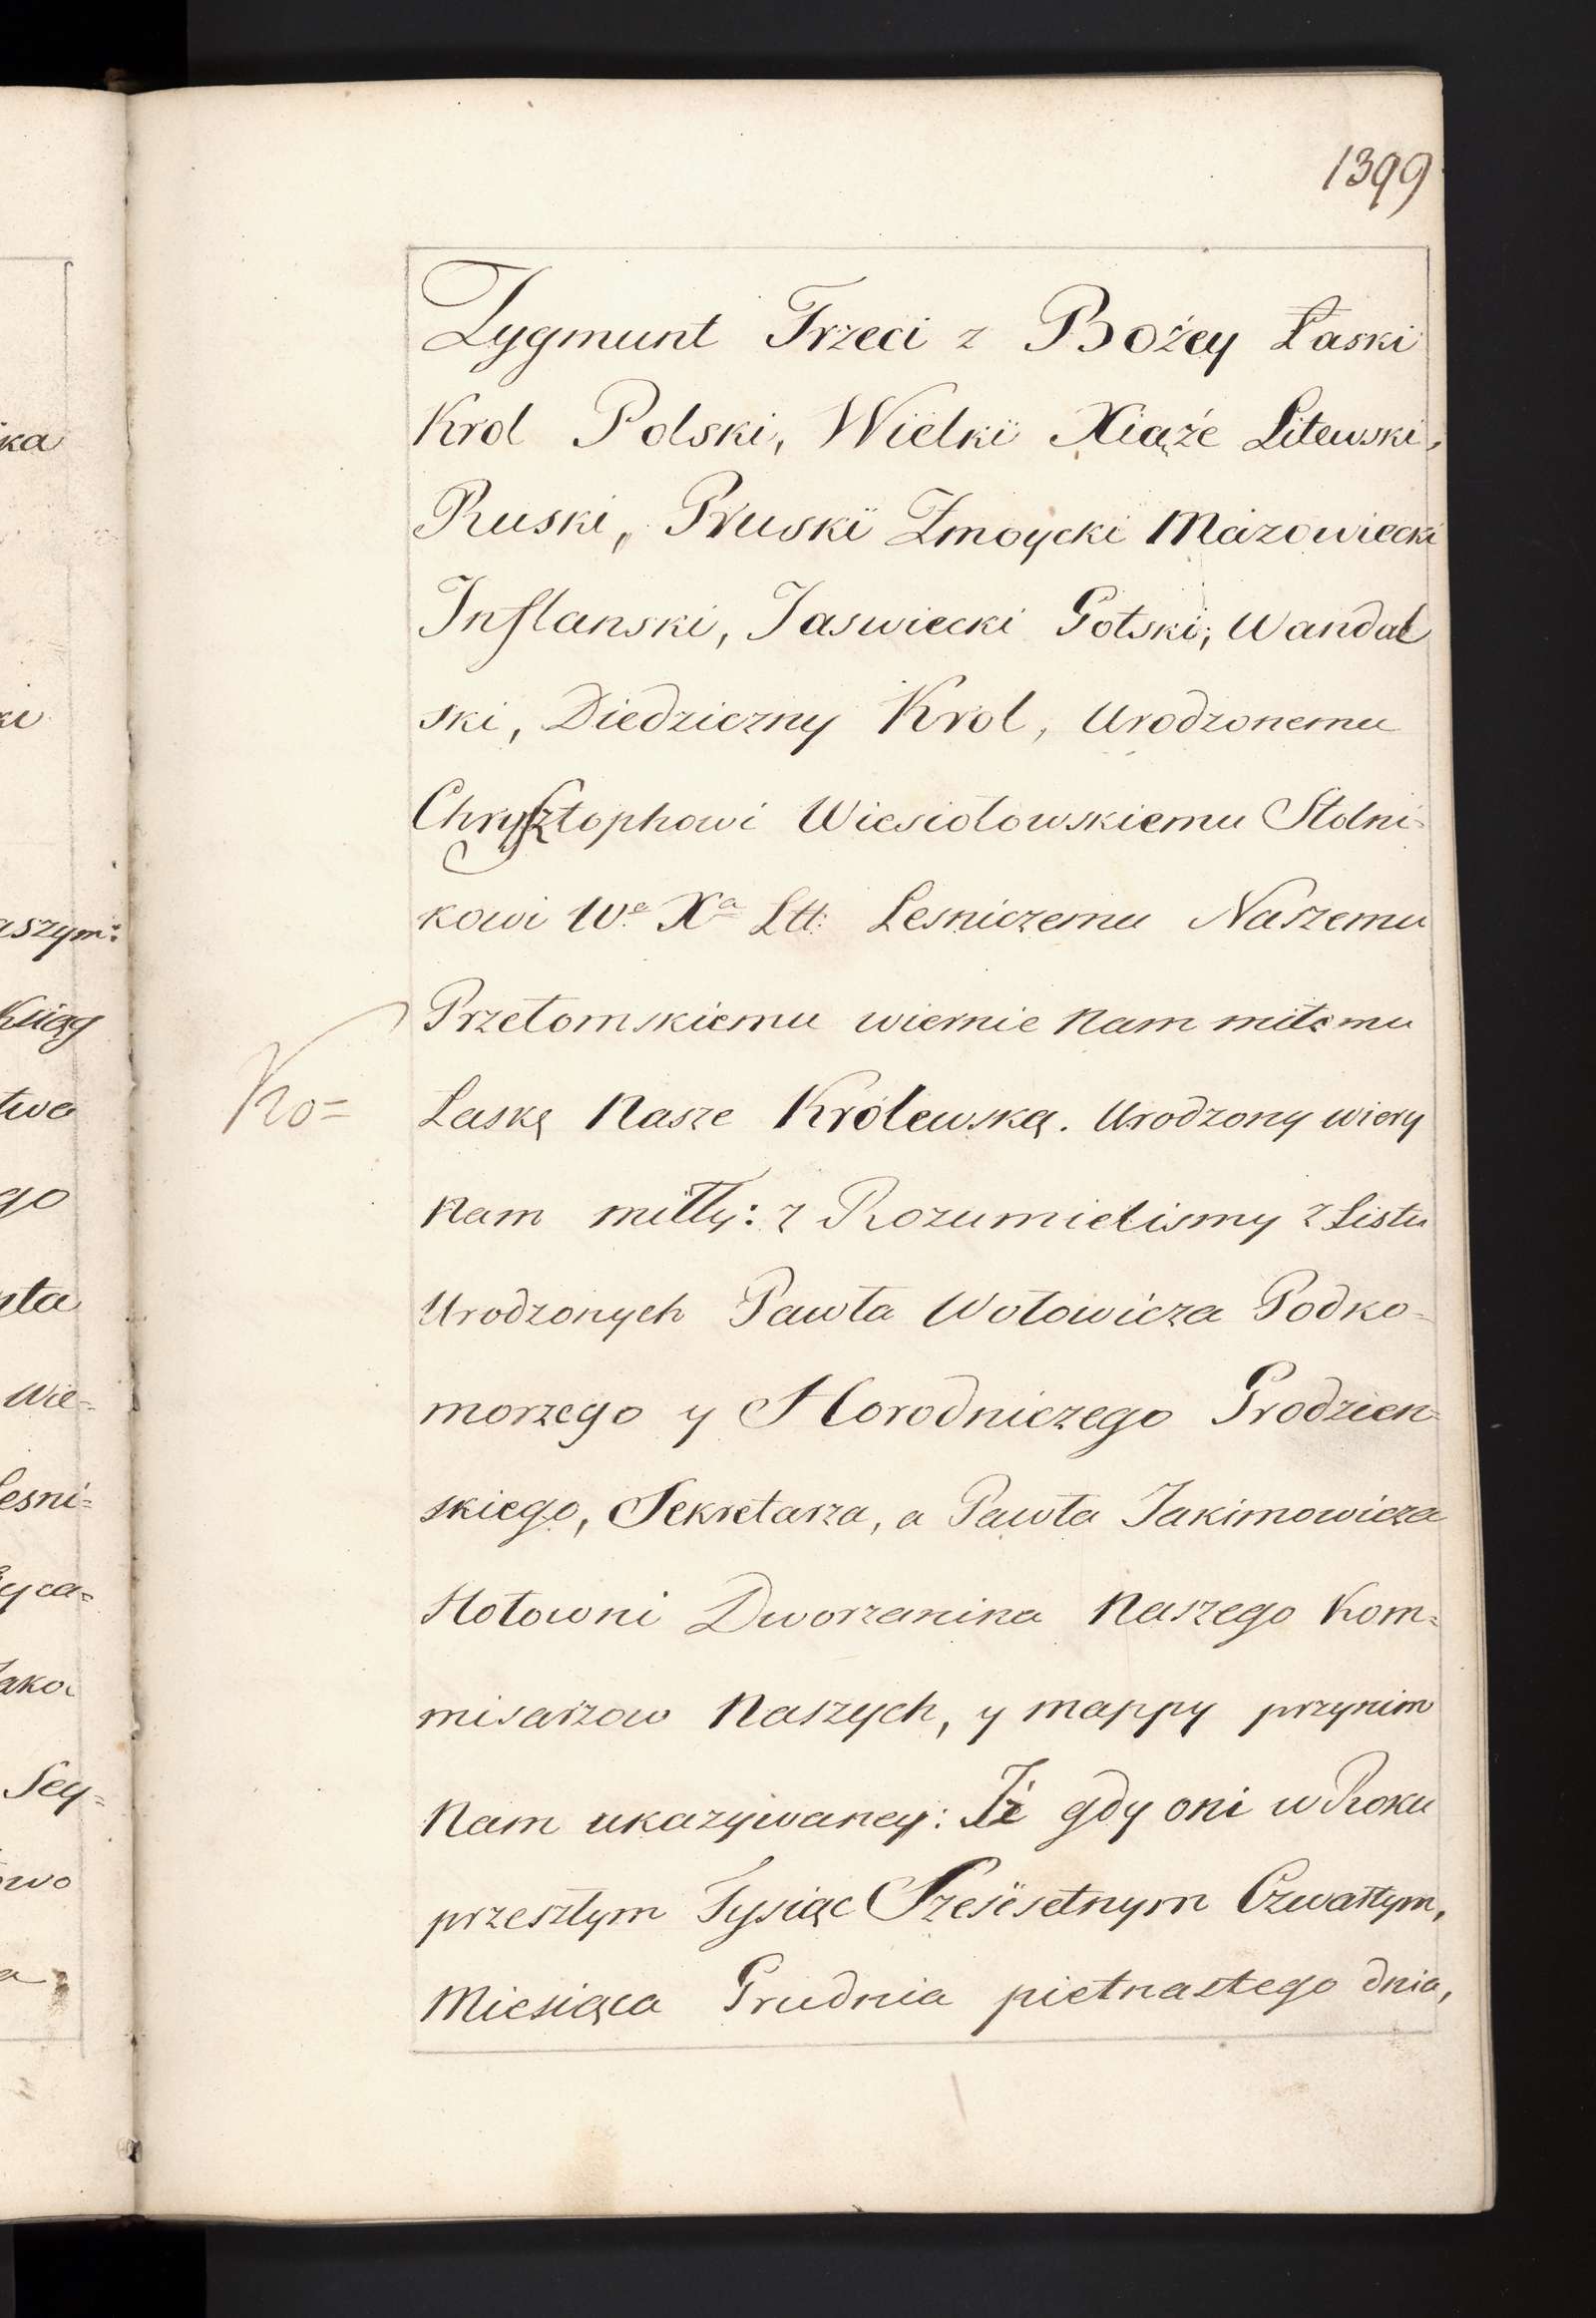 1399
Zygmunt Trzeci z Bożey Łaski
Krol Polski, Wielki Xiąże Litewski,
Ruski, Pruski Zmoycki Mazowiecki
Inflanski, Jaswiecki Gotski, Wandal
ski, Diedziczny Krol, Urodzonemu
Chrysztophowi Wiesiołowskiemu Stolni-
kowi We. Xa Ltt: Lesniczemu Naszemu
Przełomskiemu wiernie Nam miłemu
Ko=
Laskę Nasze Królewską. Urodzony wierny
Nam miłły: z Rozumielismy z Listu
Urodzonych Pawła Wołowicza Podko-
morzego y Horodniczego Grodzien=
skiego, Sekretarza, a Pawła Jakimowicza
Hołowni Dworzanina Naszego Kom=
misarzow Naszych, y mappy przynim
Nam ukazywaney: Iż gdy oni w Roku
przeszłym Tysiąc Szesésetnym Czwartym,
Miesiąca Grudnia pietnastego dnia,
ka
ki
aszym:
Ksiąg
twa
go
nta
Wie=
Lesni=
yca=
Jako
Sey=
owo
a